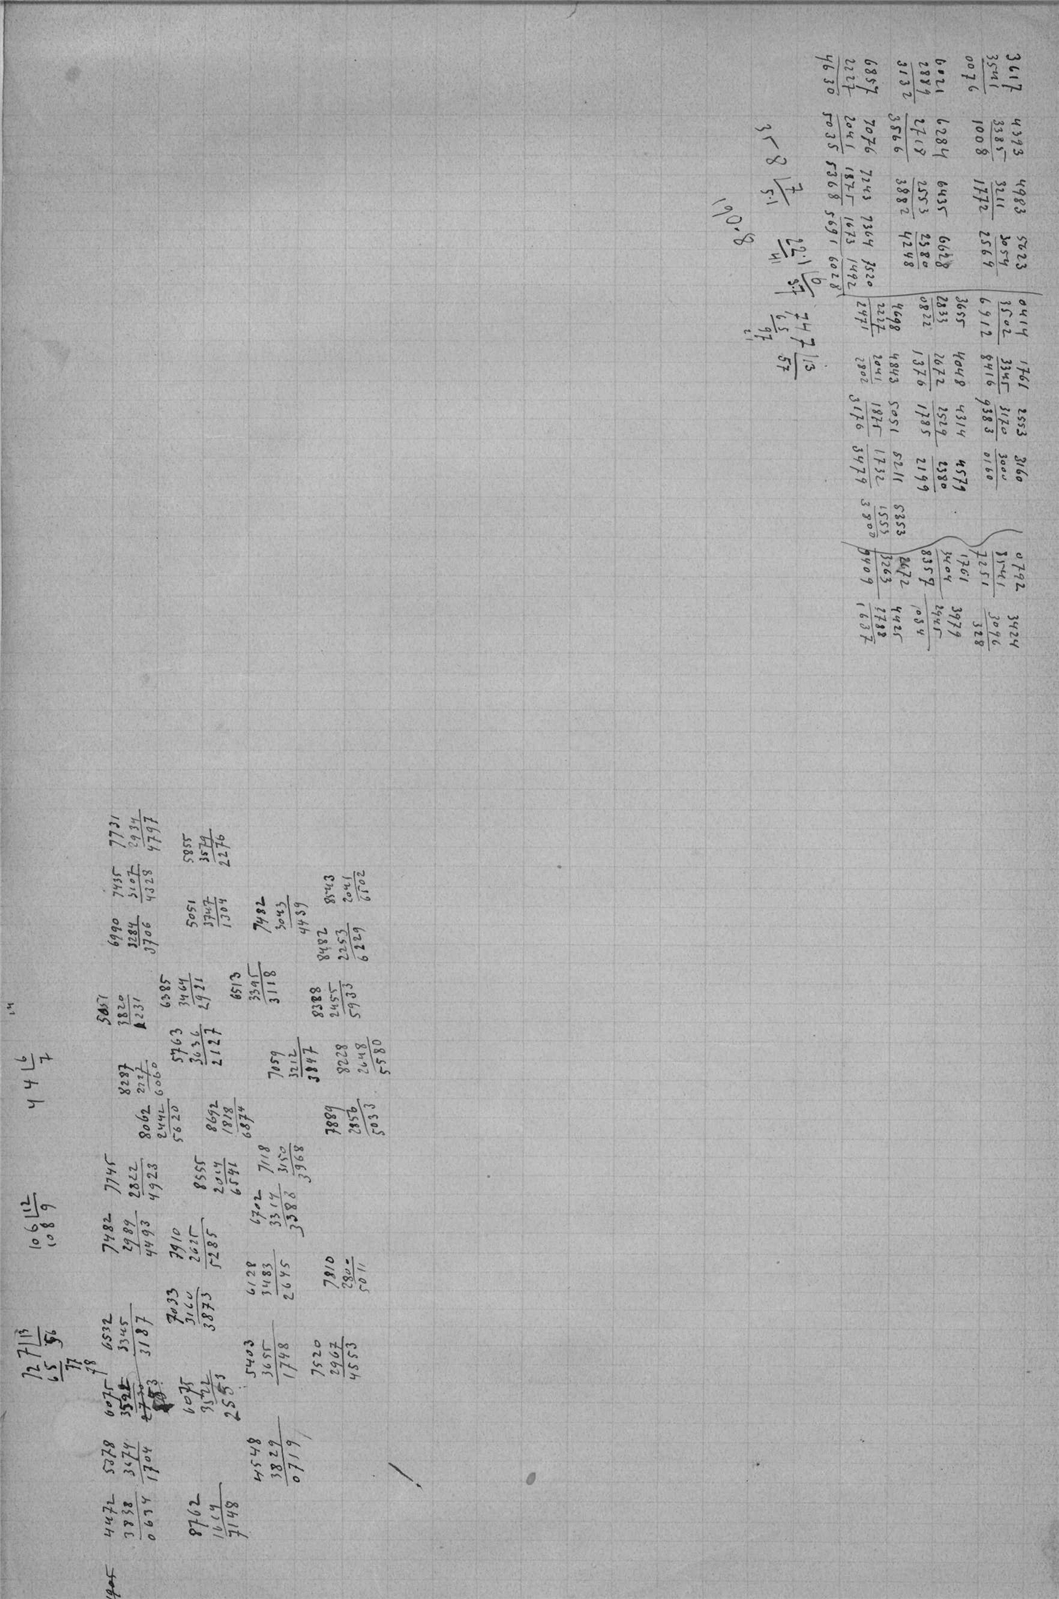 3617 4393 4983 5623
3541 3385 3211 3054
0076 1008 1772 2569
6021 6284 6435 6628
2889 2718 2553 2380
3132 3566 3882 4248
6857 7076 7243 7364 7520
2227 2041 1875 1673 1492
4630 5035 5368 5691 6028
0414 1761 2553 3160
3502 3345 3170 3000
6912 8416 9383 0160
3655 4048 4314 4579
2833 2672 2529 2380
0822 1376 1785 2199
4698 4843 5051 5211 5353
2227 2041 1875 1732 1553
2471 2802 3176 3479 3800
0792 3424
3541 3096
7251 328
1761 3979
3404 2945
8357 1034
2672 4425
3263 2788
9409 1637
35 8 7
51
747 13
65 57
97
190.8
4472 5378 6075 6532 7482 7745 8062 8287 5051 6990 7435 7731
3838 3674 3522 3345 2989 2822 2442 2227 3820 3284 3107 2934
0634 1704 3187 4493 4923 5620 6060 1231 3706 4328 4797
8762 6075 7033 7910 8555 8692 5763 6385 5051 5855
1614 3522 3160 2625 2014 1818 3636 3464 3747 3579
7148 2553 3873 5285 6541 6874 2127 2921 1304 2276
4548 5403 6128 6702 7118 7059 6513 7482
3829 3655 3483 3314 3150 3212 3395 3043
0719 1748 2645 3388 3968 3847 3118 4439
7520 7810 7889 8228 8388 8482 8543
2967 2856 2648 2455 2253 2041
4553 5011 5033 5580 5933 6229 6502
727 13
65 56
77
78
106 12
108 9
44 6
7